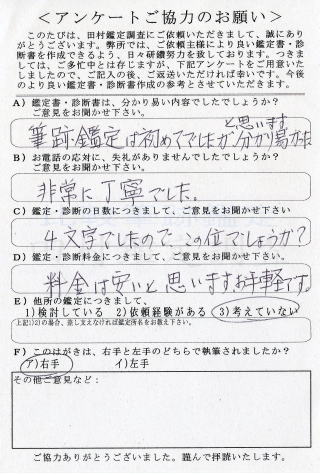 ＜アンケートご協力のお願い＞
このたびは、田村鑑定調査にご依頼いただきまして、誠にあり
がとうございます。弊所では、ご依頼主様により良い鑑定書・診
断書を作成できるよう、日々研鑽努力を致しております。つきま
しては、ご多忙中とは存じますが、下記アンケートをご用意いた
しましたので、ご記入の後、ご返送いただければ幸いです。今後
のより良い鑑定書・診断書作成の参考とさせていただきます。
A）鑑定書・診断書は、分かり易い内容でしたでしょうか？
ご意見をお聞かせ下い。
と思います
筆跡鑑定は初めてでしたが分かり易かった
B）お電話の応対に、失礼がありませんでしたでしょうか？
ご意見をお聞かせ下い。
非常に丁寧でした。
C）鑑定・診断の日数につきまして、ご意見をお聞かせ下さい
4文字でしたので、この位でしょうか？
D）鑑定・診断料金につきまして、ご意見をお聞かせ下さい
料金は安いと思いますお手軽です。
E）他所の鑑定につきまして、
1)検討している 2)依頼経験がある 3)考えていない
上記1)2)の場合、差し支えなければ鑑定所名をお教え下さい。
F）このはがきは、右手と左手のどちらで執筆されましたか？
ア)右手 イ)左手
その他ご意見など：
ご協力ありがとうございました。謹んで拝読いたします。